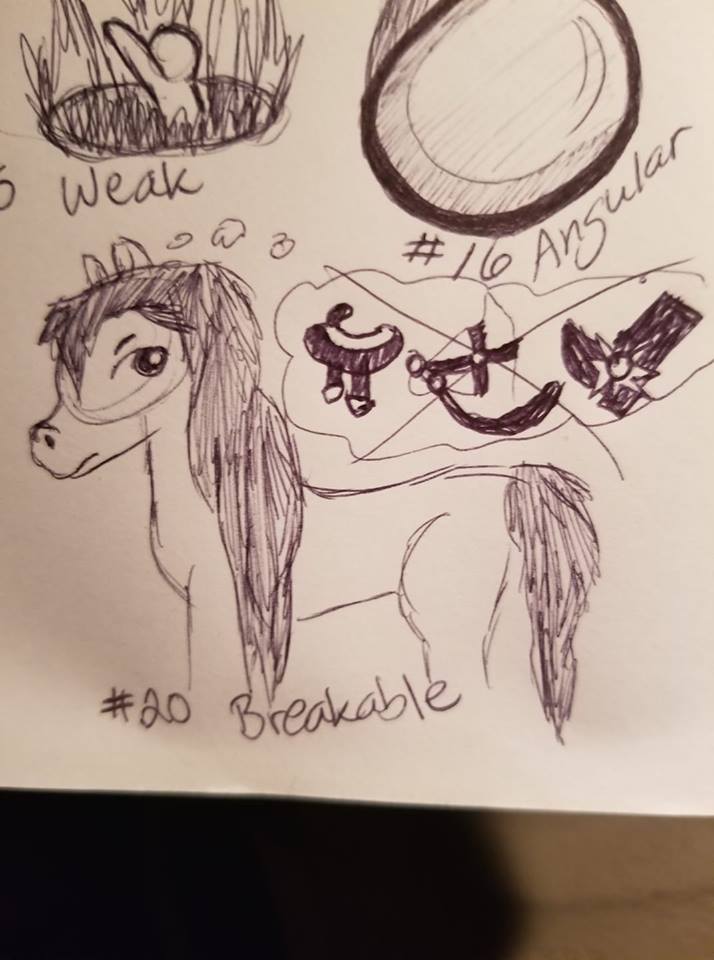 5 Weak
#16 Angular
#20 Breakable